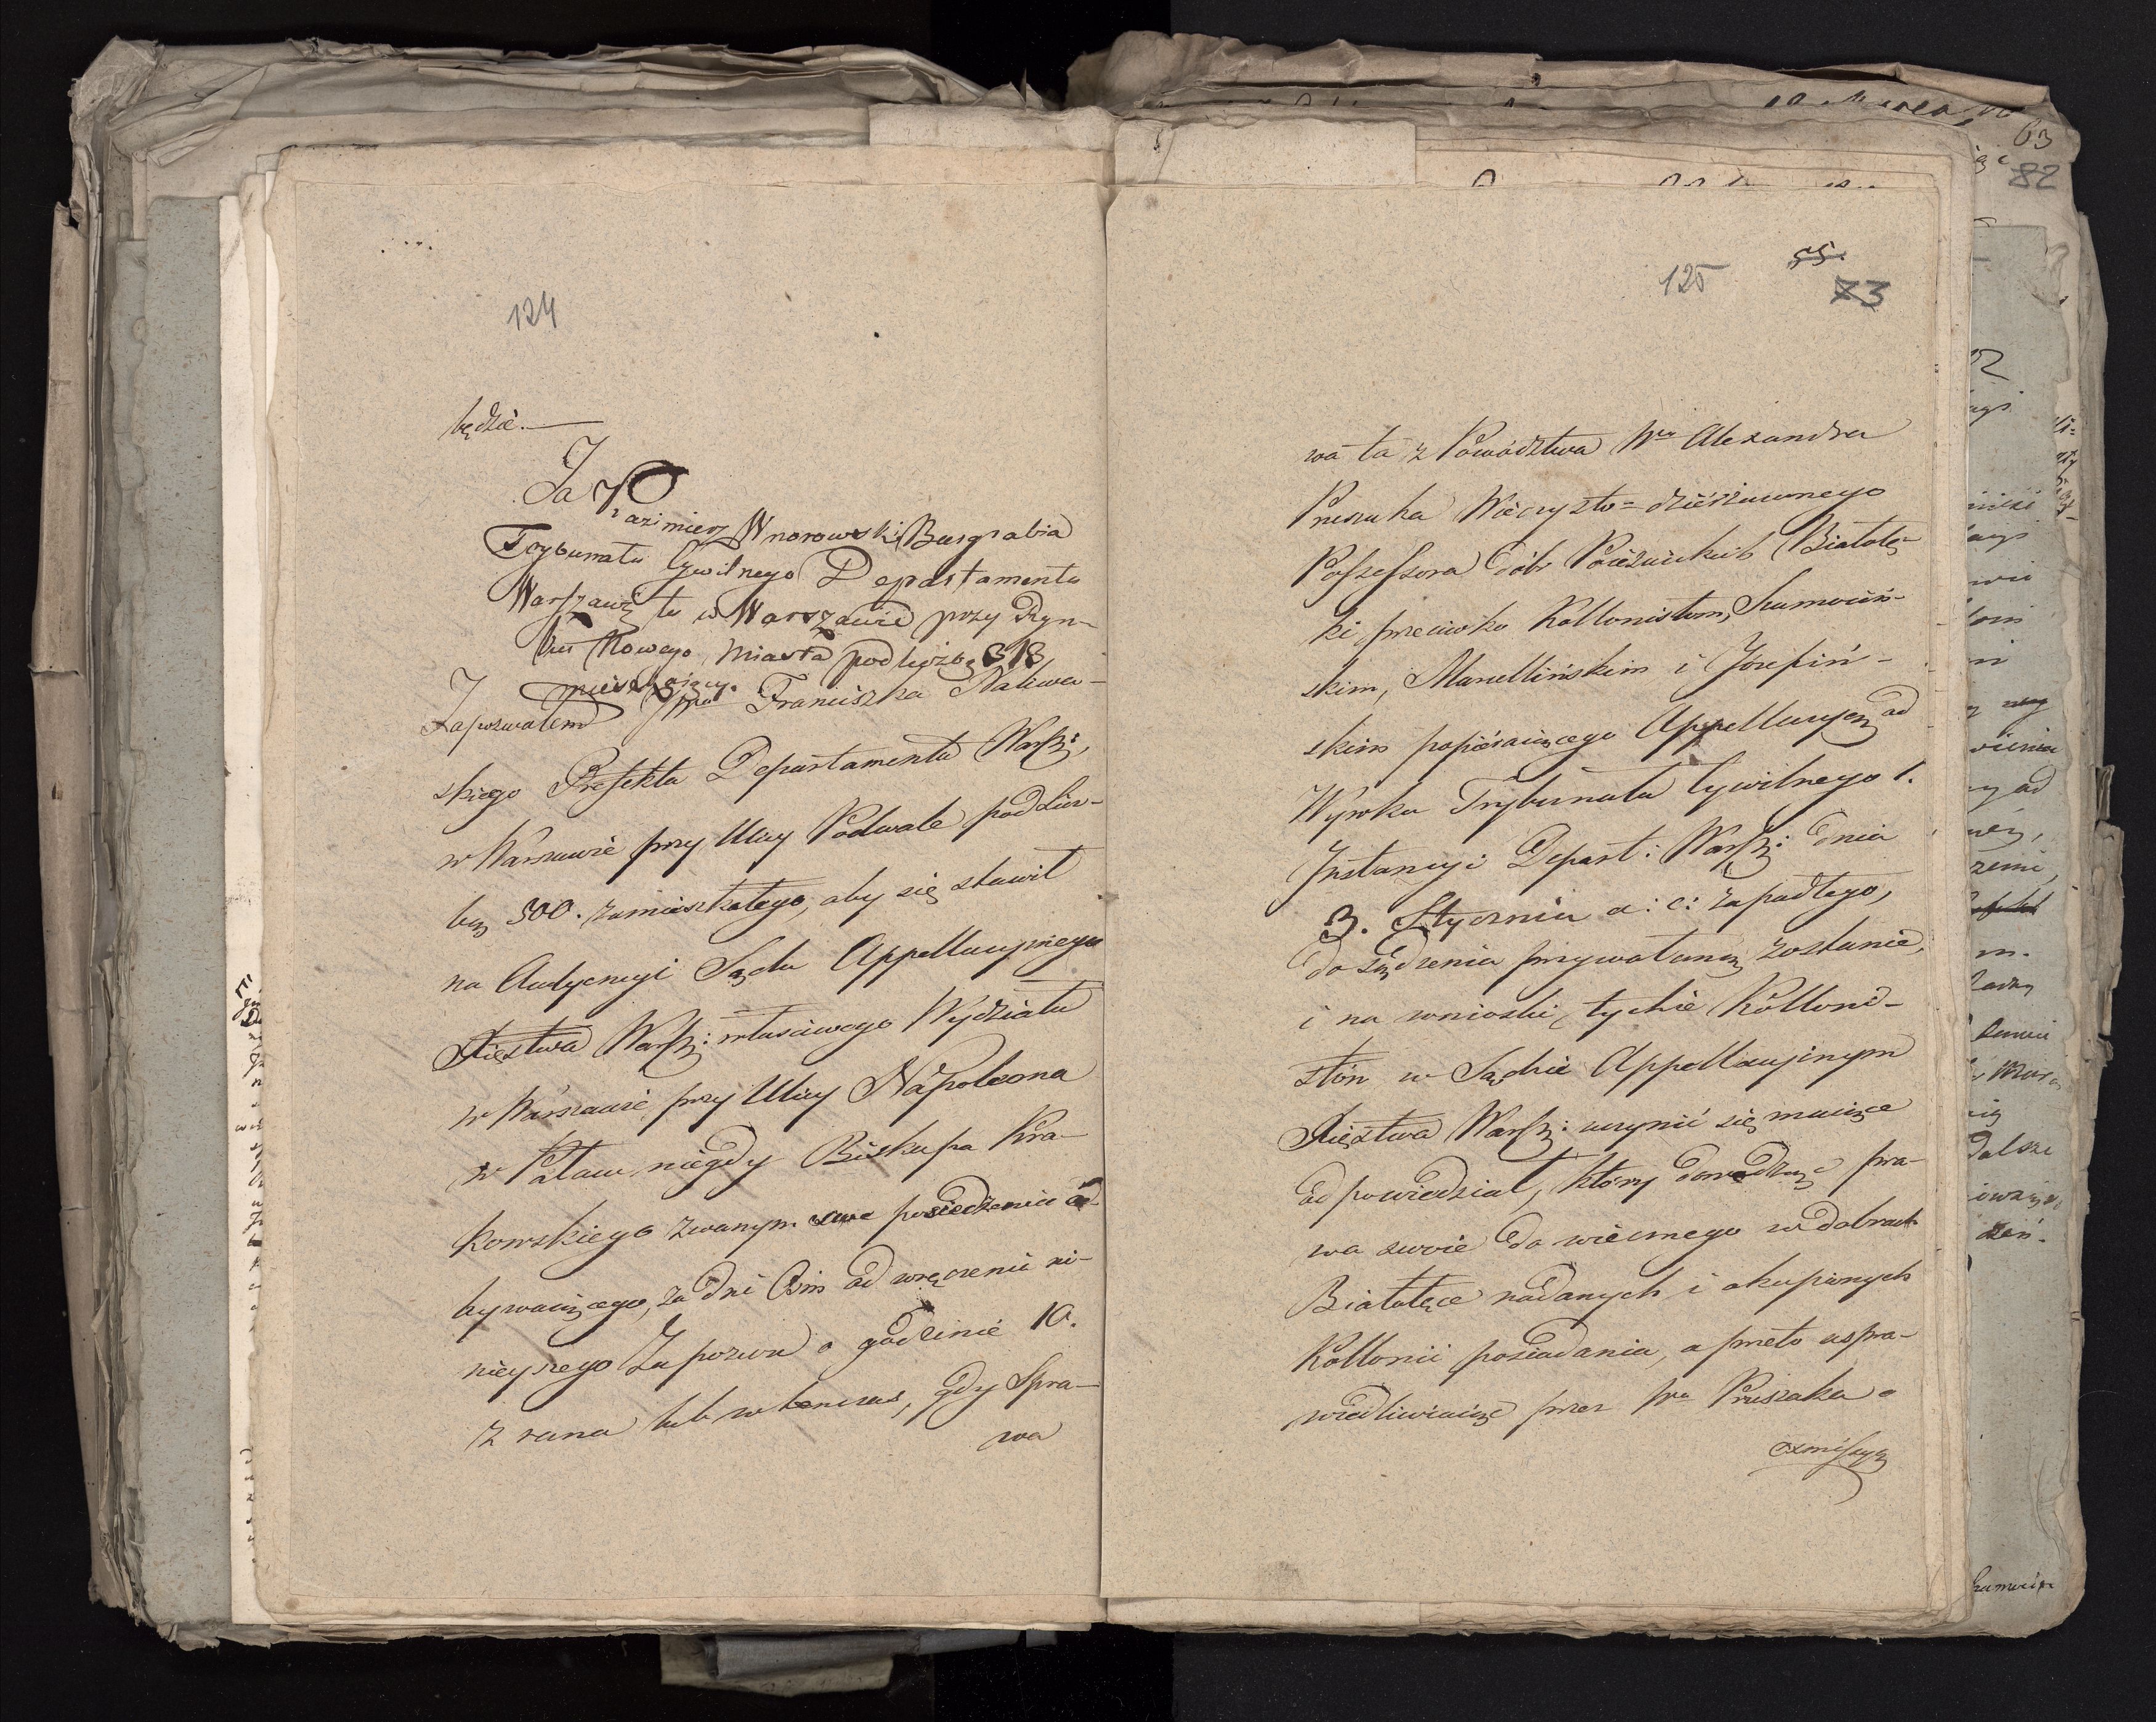 124
będzie.—
Ja Kazimierz Wnorowski Burgrabia
Trybunału Cywilnego Departamentu
Warszaws: tu w Warszawie przy Ryn-
ku Nowego Miasta pod liczbą 318
mieszkaiący.
Zapozwałem JPana Franciszka Nakwa-
skiego Prefekta Departamentu Warsz:,
w Warszawie przy Ulicy Podwale pod Licz-
bą 500. zamieszkałego, aby się stawił
na Audyencyi Sądu Appellacyjnego
Xięstwa Warsz: właściwego Wydziału
w Warszawie przy Ulicy Napoleona
w Pałacu niegdy Biskupa Kra-
kowskiego zwanym swe posiedzenia od-
bywaiącego, za dni Ośm od wręczenia ni-
nieyszego Zapozwu o godzinie 10.
z rana lub wtenczas, gdy Spra-
wa
125
55.
73
wa ta z Powództwa Wo Alexandra
Pruszaka Wieczysto=dzierżawnego
Possessora dóbr Poiezuickich Białołę-
ki przeciwko Kollonistom, Szamociń-
skim, Marcellińskim i Józefiń-
skim popieraiącego Appellacyą od
Wyroku Trybunału Cywilnego 1.
Instancyi Depart: Warsz: dnia
3. Stycznia a: c: zapadłego,
do sądzenia przywołaną zostanie,
i na wnioski, tychże Kolloni-
stów w Sądzie Appellacyjnym
Xięstwa Warsz: uczynić się maiące
odpowiedział, który dowodząc pra-
wa swoie do wiecznego w dobrach
Białołęce nadanych i okupionych
Kollonii posiadania, a przeto uspra-
wiedliwiaiąc przez Wo Pruszaka o
exmissyą
63
82